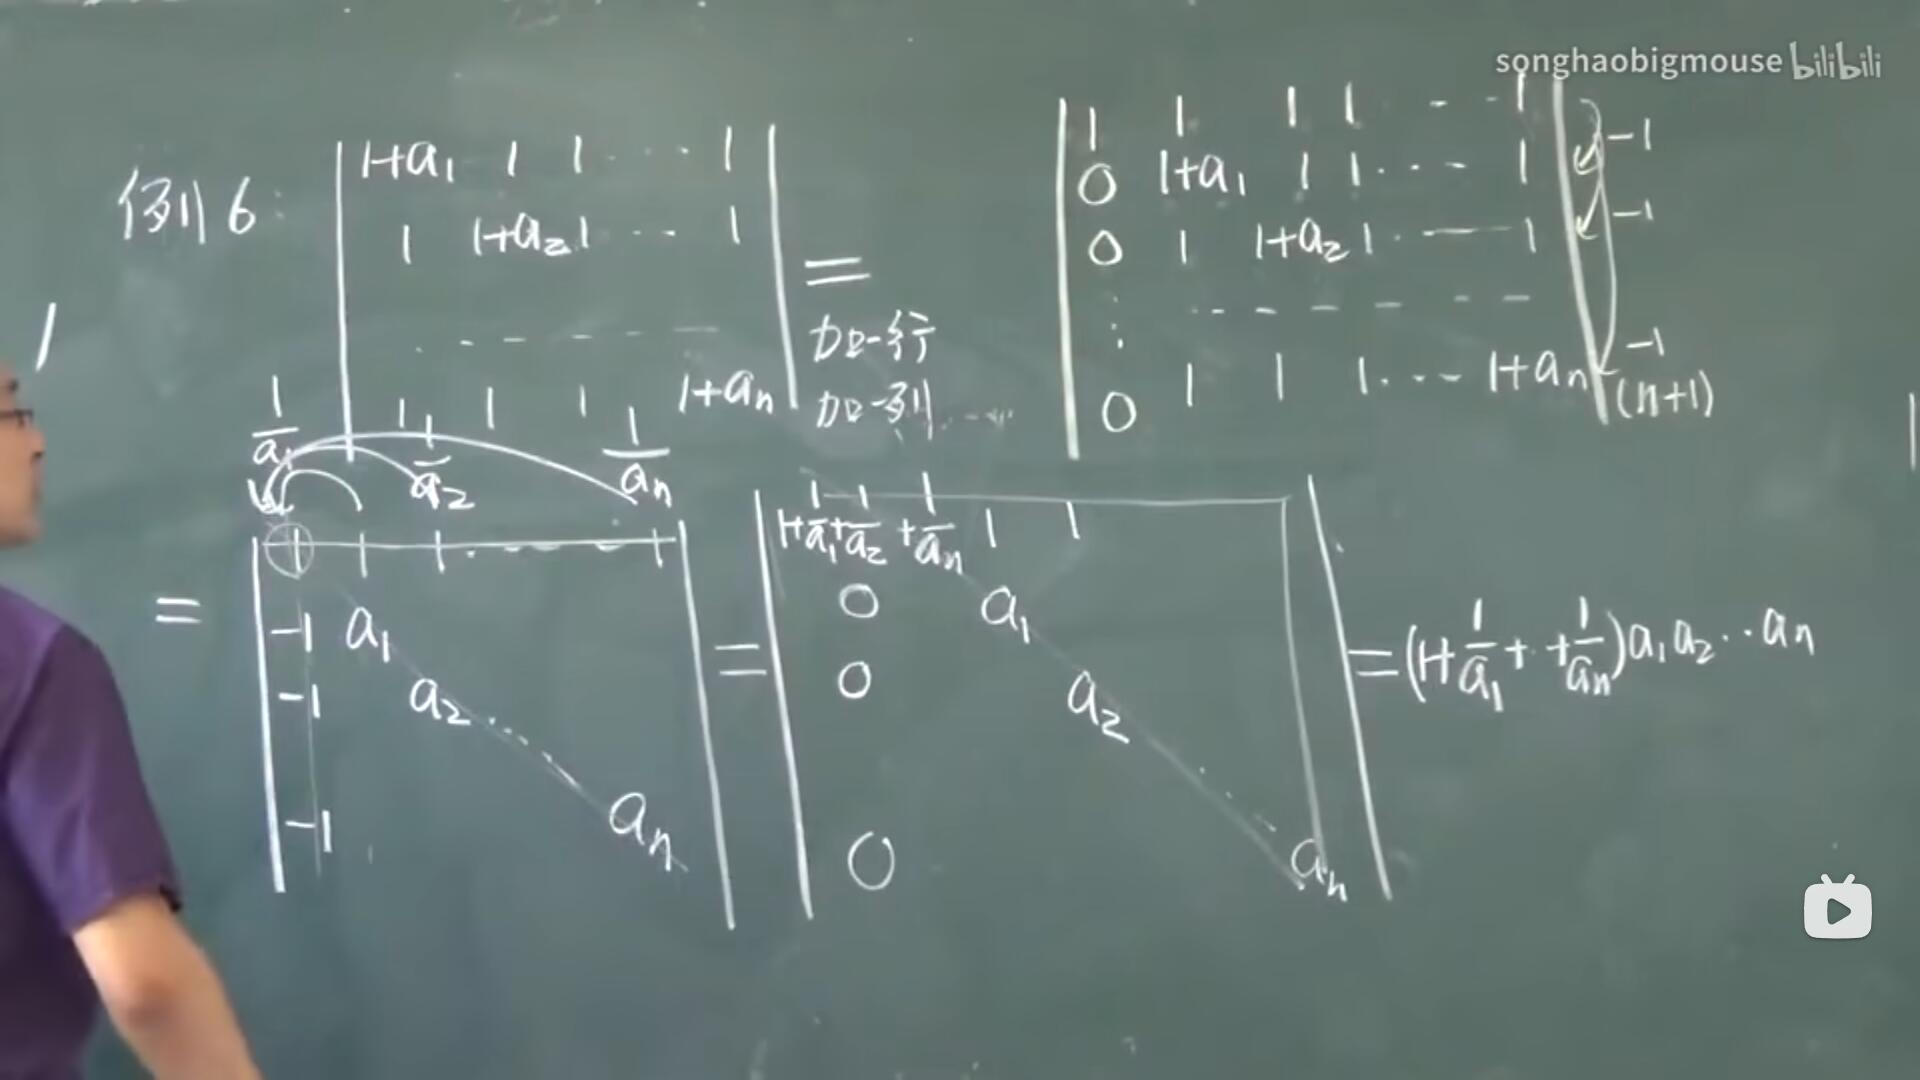 songhaobigmouse bilibili
例6:
1+a₁ 1 1 ··· 1
1 1+a₂ 1 ··· 1
1 1 1 1 1+aₙ
=
加一行
加一列
1 1 1 1 - - 1
0 1+a₁ 1 1 ··· 1
0 1 1+a₂ 1 · — 1
⋮
0 1 1 1 ··· 1+aₙ
-1
-1
-1
(n+1)
1/a₁ 1/a₂ 1/aₙ
=
1 1 1 ··· 1
-1 a₁
-1 a₂ ···
-1 aₙ
=
1+1/a₁+1/a₂ +1/aₙ 1 1
0 a₁
0 a₂
0 aₙ
=(1+1/a₁+··+1/aₙ)a₁a₂··aₙ